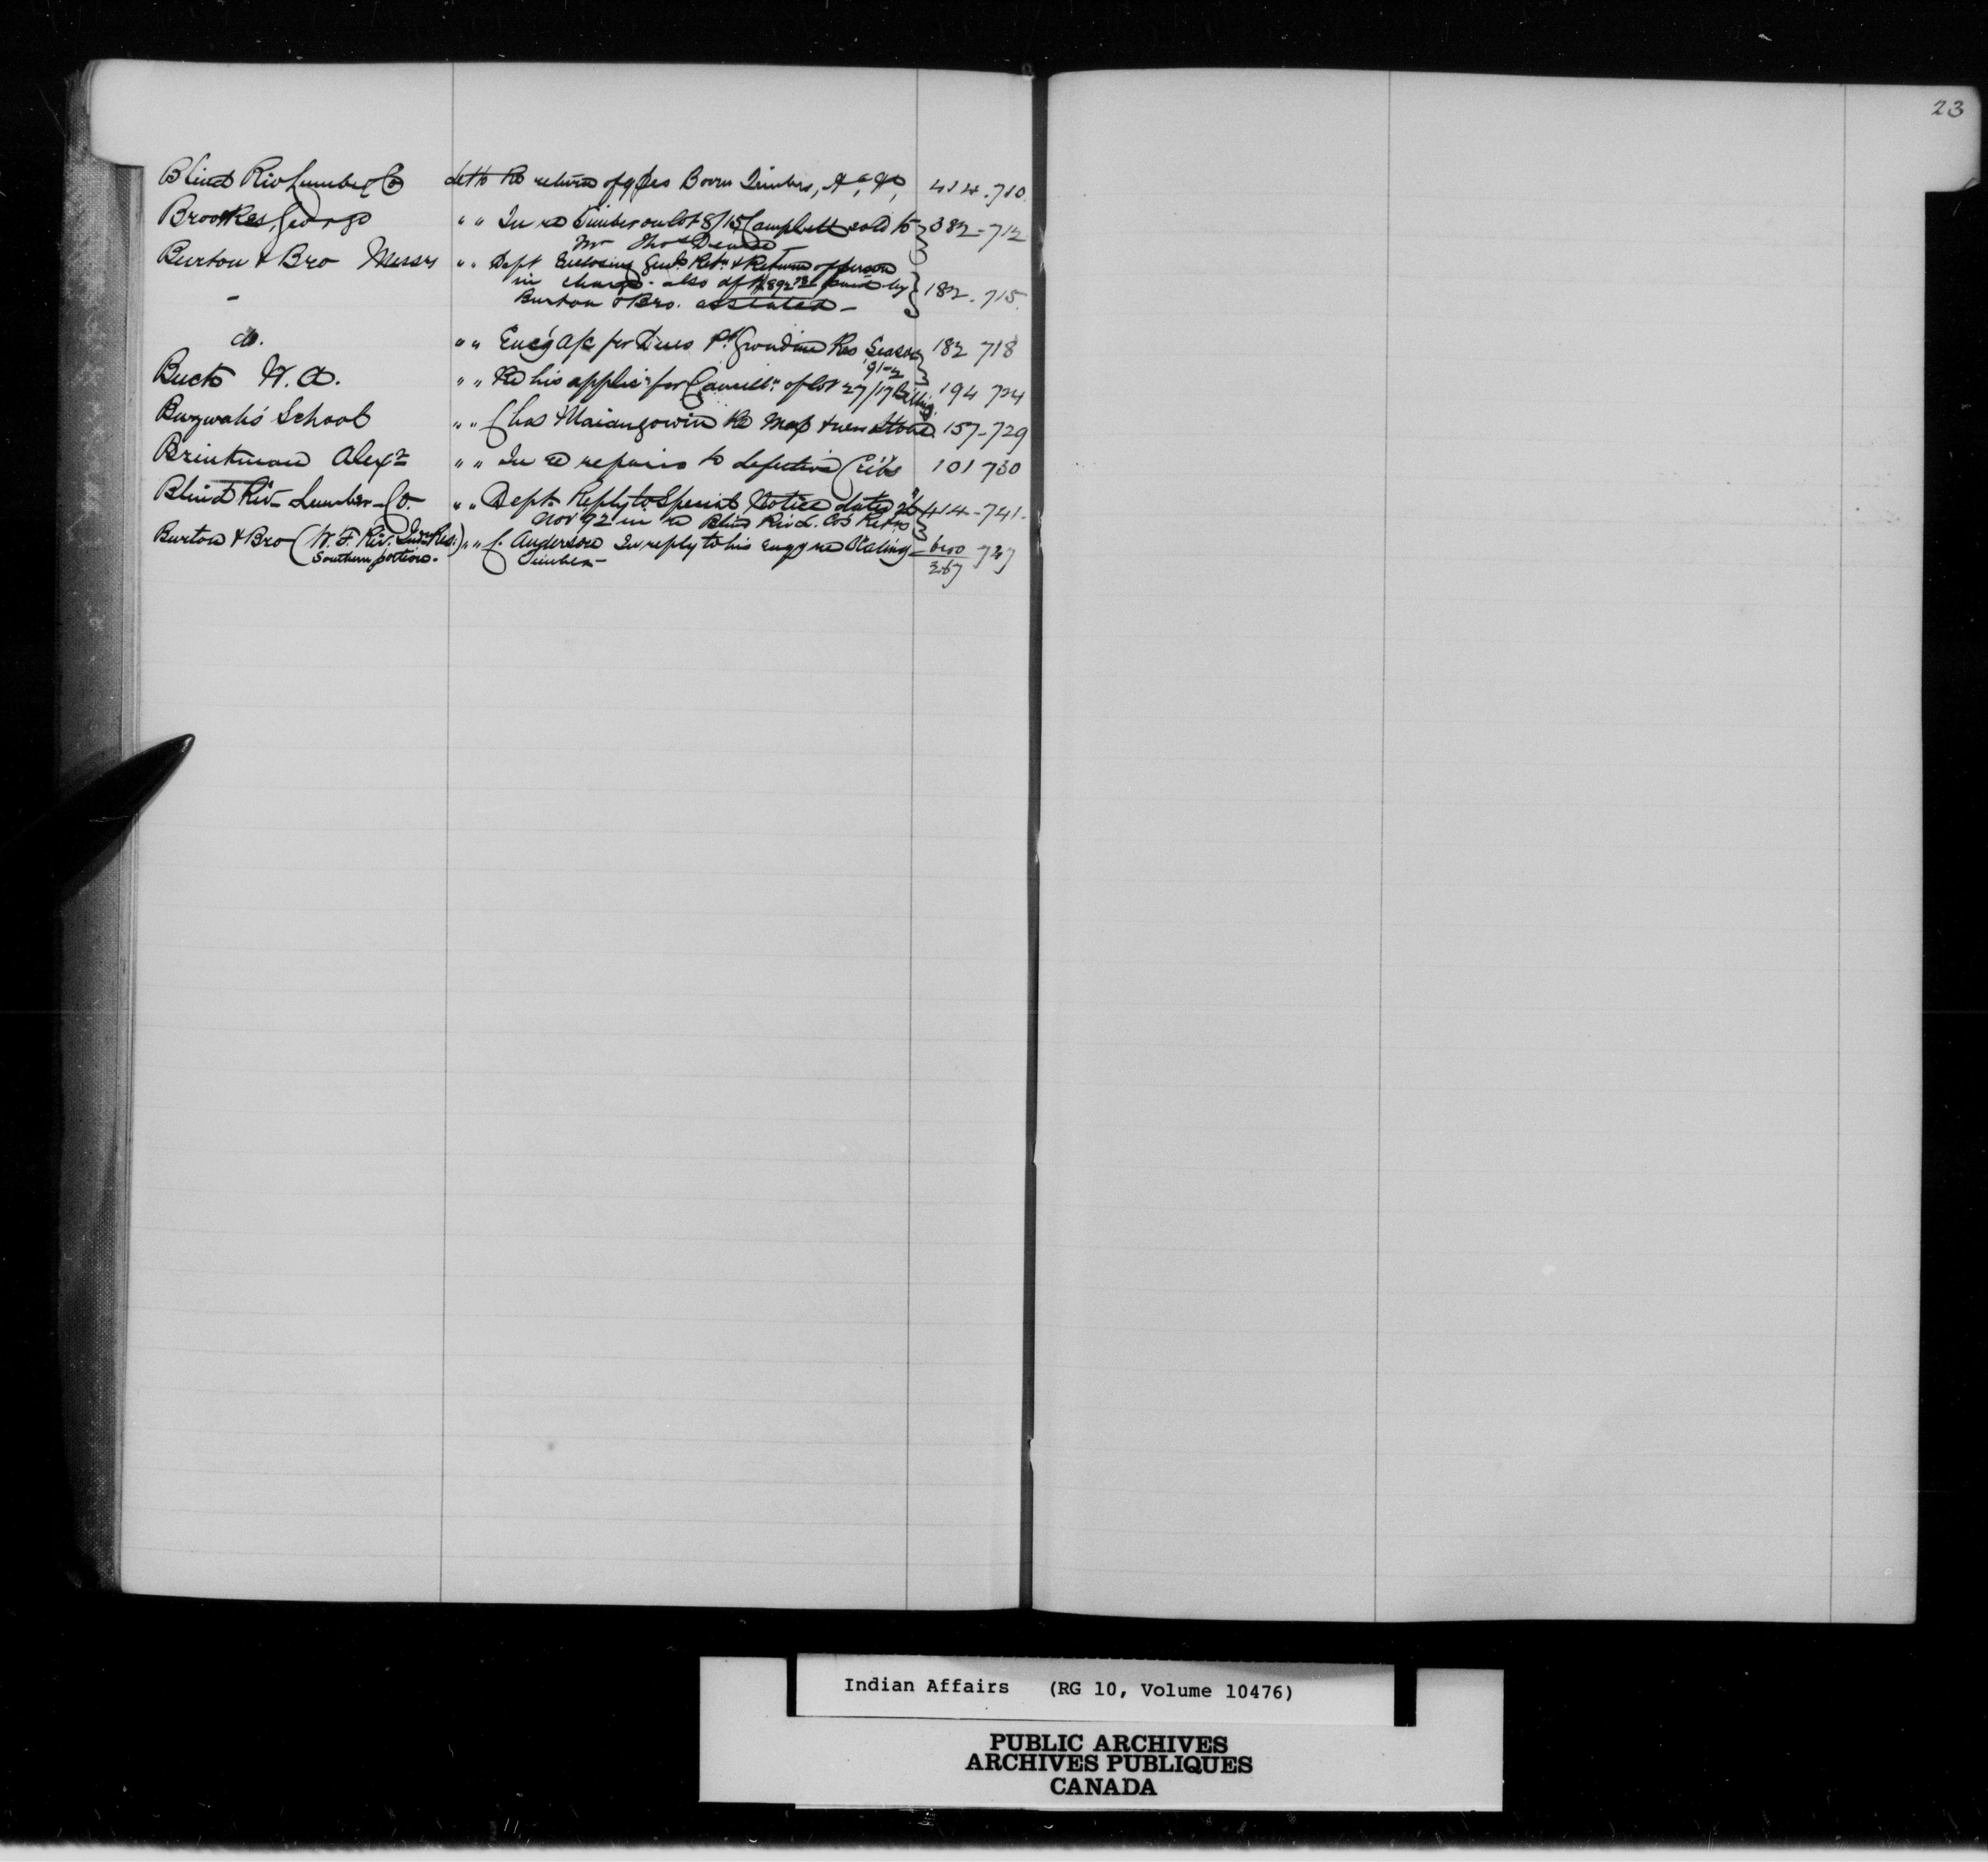 23
Blind Riv Lumber Co letth Re return of 9 pcs Boom Timber, &c, &c, 414.710
Brookes, George " " In re timber on lot 8/15 Campbell sold to 382-712
Mr Thos
Burton & Bro Messrs " " Dept Enclosing Genl Retn & Return of person
in charge - also dft $892 paid by 182.715
Burton & Bro. as stated -
do. " " Enc'g a/c for Dues Pt Grondine Res Season 182 718
91-2
Buck W. A. " " Re his applicn for Cancelln of lot 27/17 Billing. 194 724
Buzwah's School " " Chas Re Map & new Stove 157-729
Brinkman Alexr " " In re repairs to defective Cribs 101 730
Blind Riv. Lumber Co. " " Dept. Reply to Special Notice dated 414-741-
Nov 92 in re Blind Riv L. Co's Retns
Burton & Bro (W. F. Riv. Indn Res.) " " C. Anderson In reply to his enqy re Scaling 600 747
Southern portion. Timber - 267
Indian Affairs (RG 10, Volume 10476)
PUBLIC ARCHIVES
ARCHIVES PUBLIQUES
CANADA